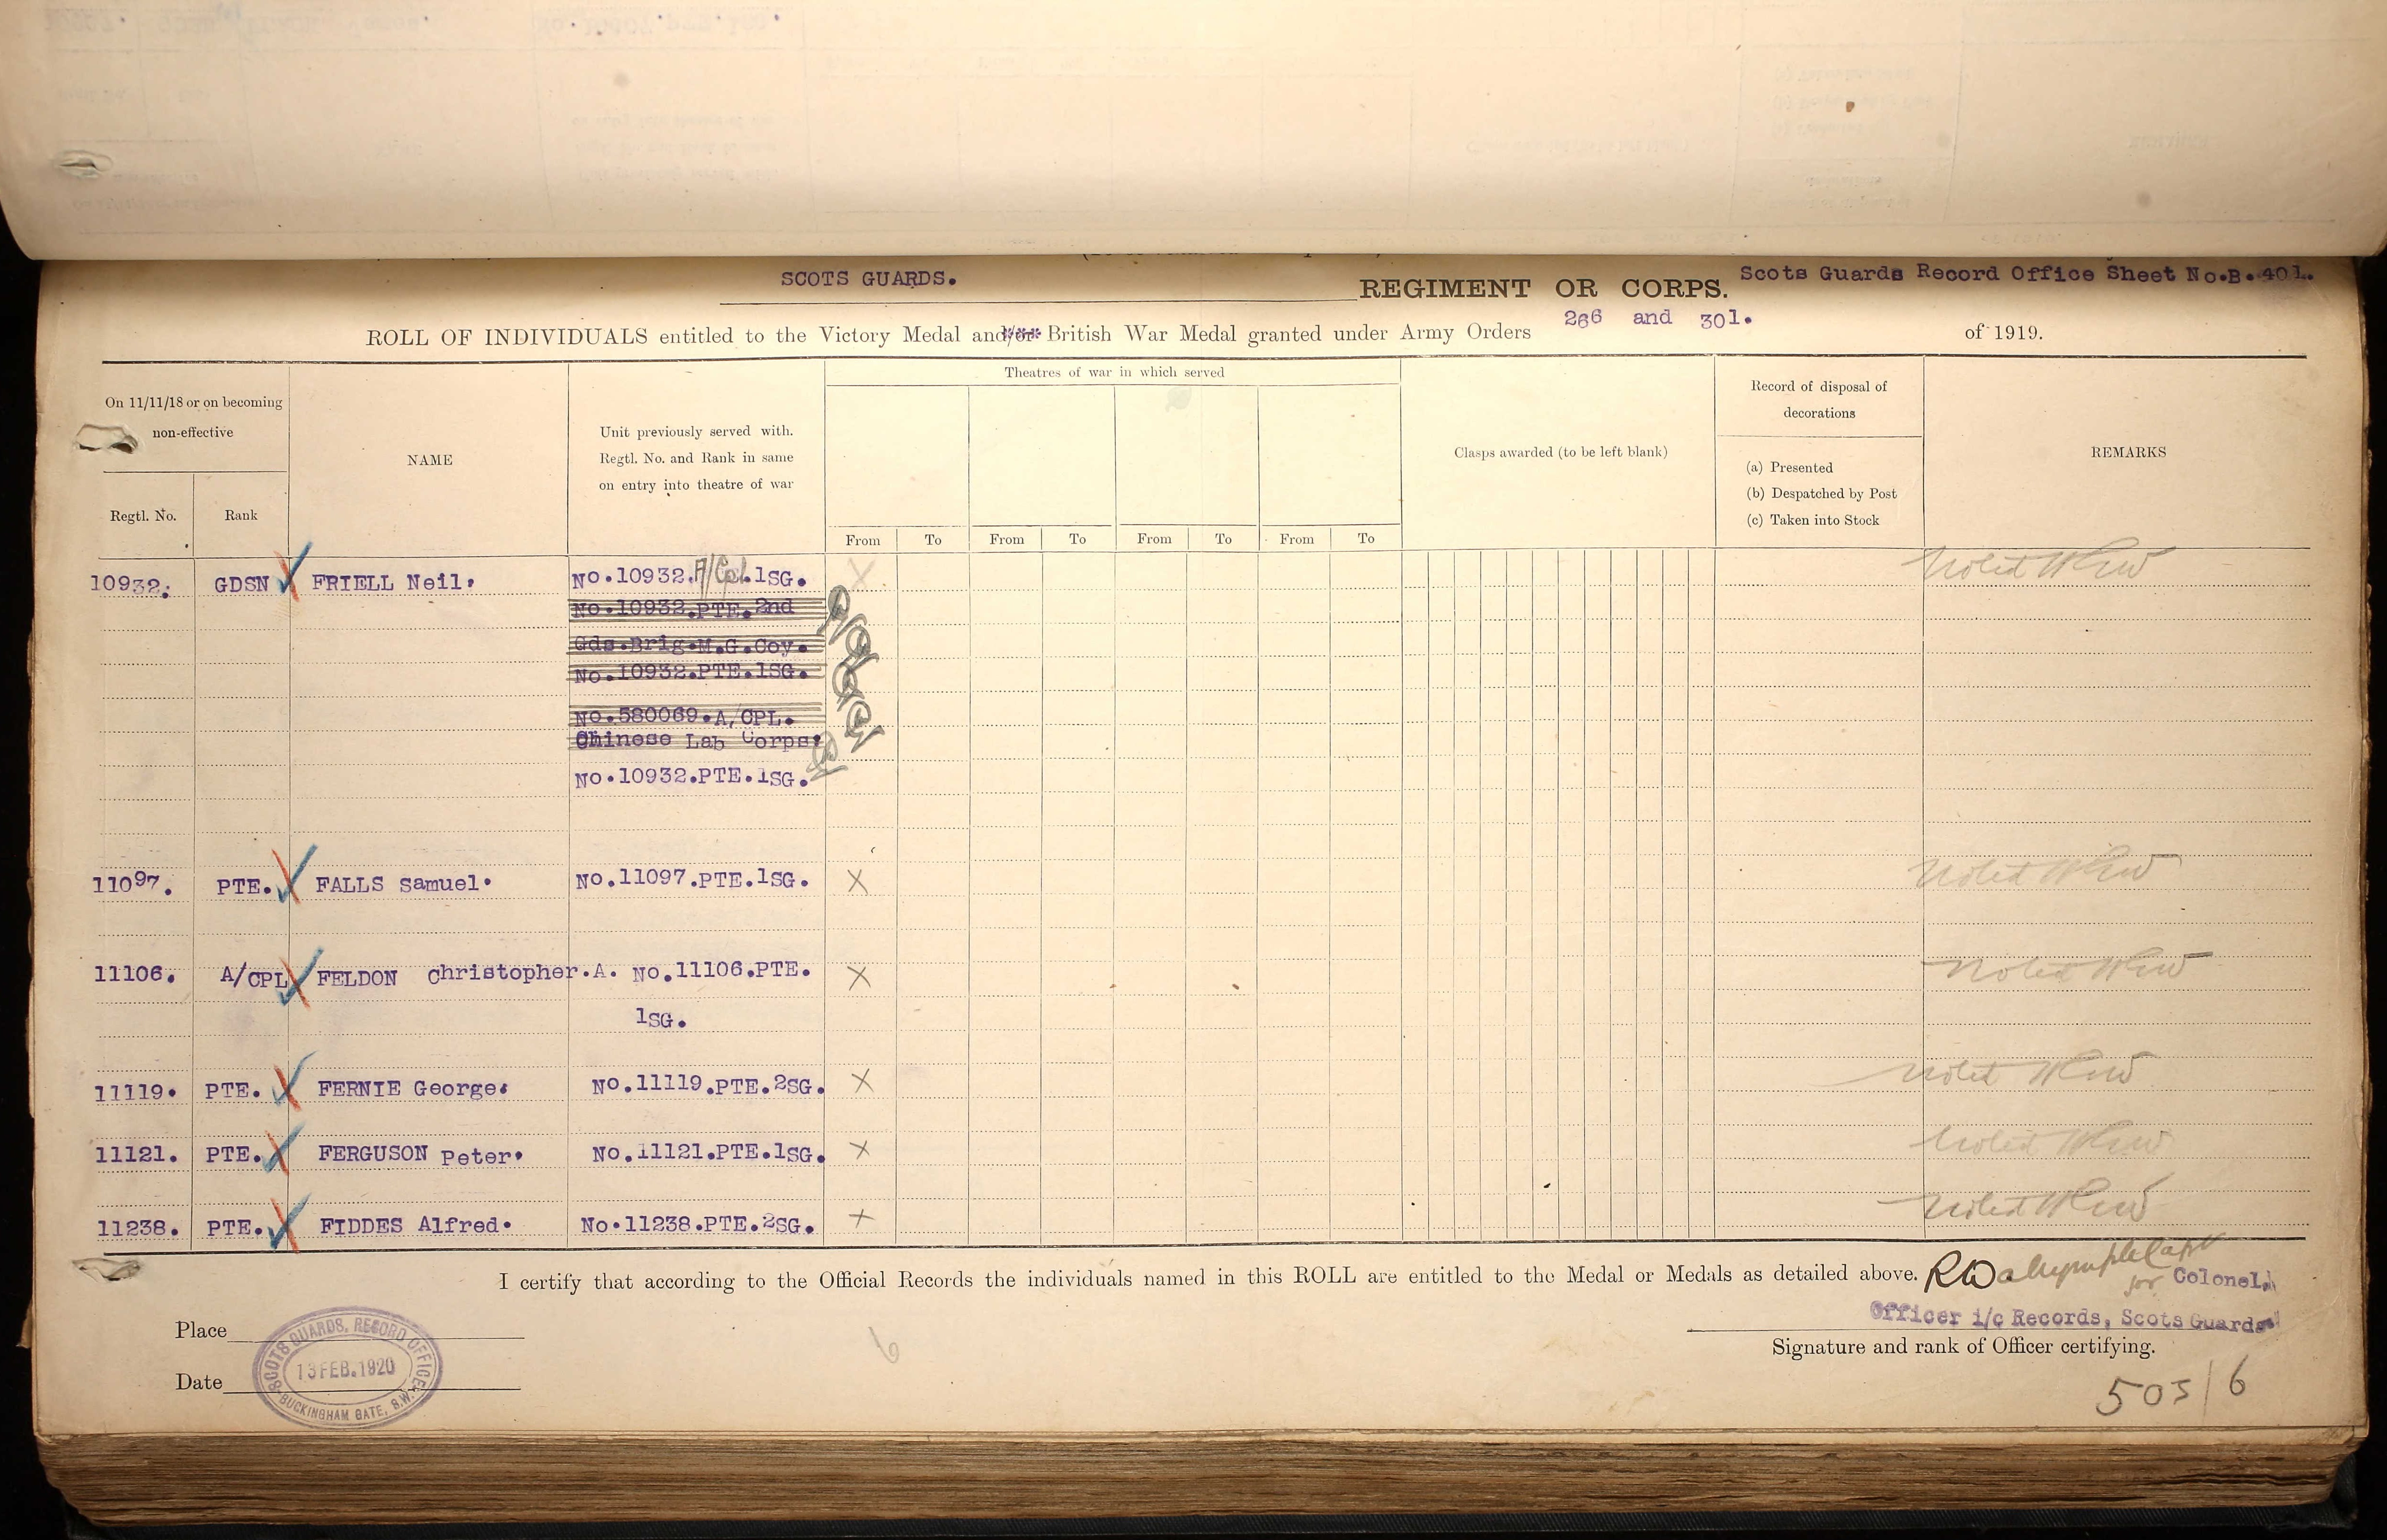 SCOTS GUARDS. REGIMENT OR CORPS. Scots Guards Record Office Sheet No.B.401.
ROLL OF INDIVIDUALS entitled to the Victory Medal and/or British War Medal granted under Army Orders 266 and 301. of 1919.
On 11/11/18 or on becoming non-effective
Regtl. No.
Rank
NAME
Unit previously served with.
Regtl. No. and Rank in same
on entry into theatre of war
Theatres of war in which served
From To From To From To From To
Clasps awarded (to be left blank)
Record of disposal of
decorations
(a) Presented
(b) Despatched by Post
(c) Taken into Stock
REMARKS
10932. GDSN FRIELL Neil. No.10932.A/Cpl.1SG. X Noted
No.10932.PTE.2nd
Gds.Brig.M.G.Coy.
No.10932.PTE.1SG.
No.580069.A/CPL.
Chinese Lab Corps.
No.10932.PTE.1SG.
11097. PTE. FALLS Samuel. No.11097.PTE.1SG. X Noted
11106. A/CPL FELDON Christopher.A. No.11106.PTE. X Noted
1SG.
11119. PTE. FERNIE George. No.11119.PTE.2SG. X Noted
11121. PTE. FERGUSON Peter. No.11121.PTE.1SG. X Noted
11238. PTE. FIDDES Alfred. No.11238.PTE.2SG. X Noted
I certify that according to the Official Records the individuals named in this ROLL are entitled to the Medal or Medals as detailed above. for Colonel,
Officer i/c Records, Scots Guards
Signature and rank of Officer certifying.
Place
Date
SCOTS GUARDS, RECORD OFFICE,
13 FEB.1920
BUCKINGHAM GATE, S.W.
6
503/6